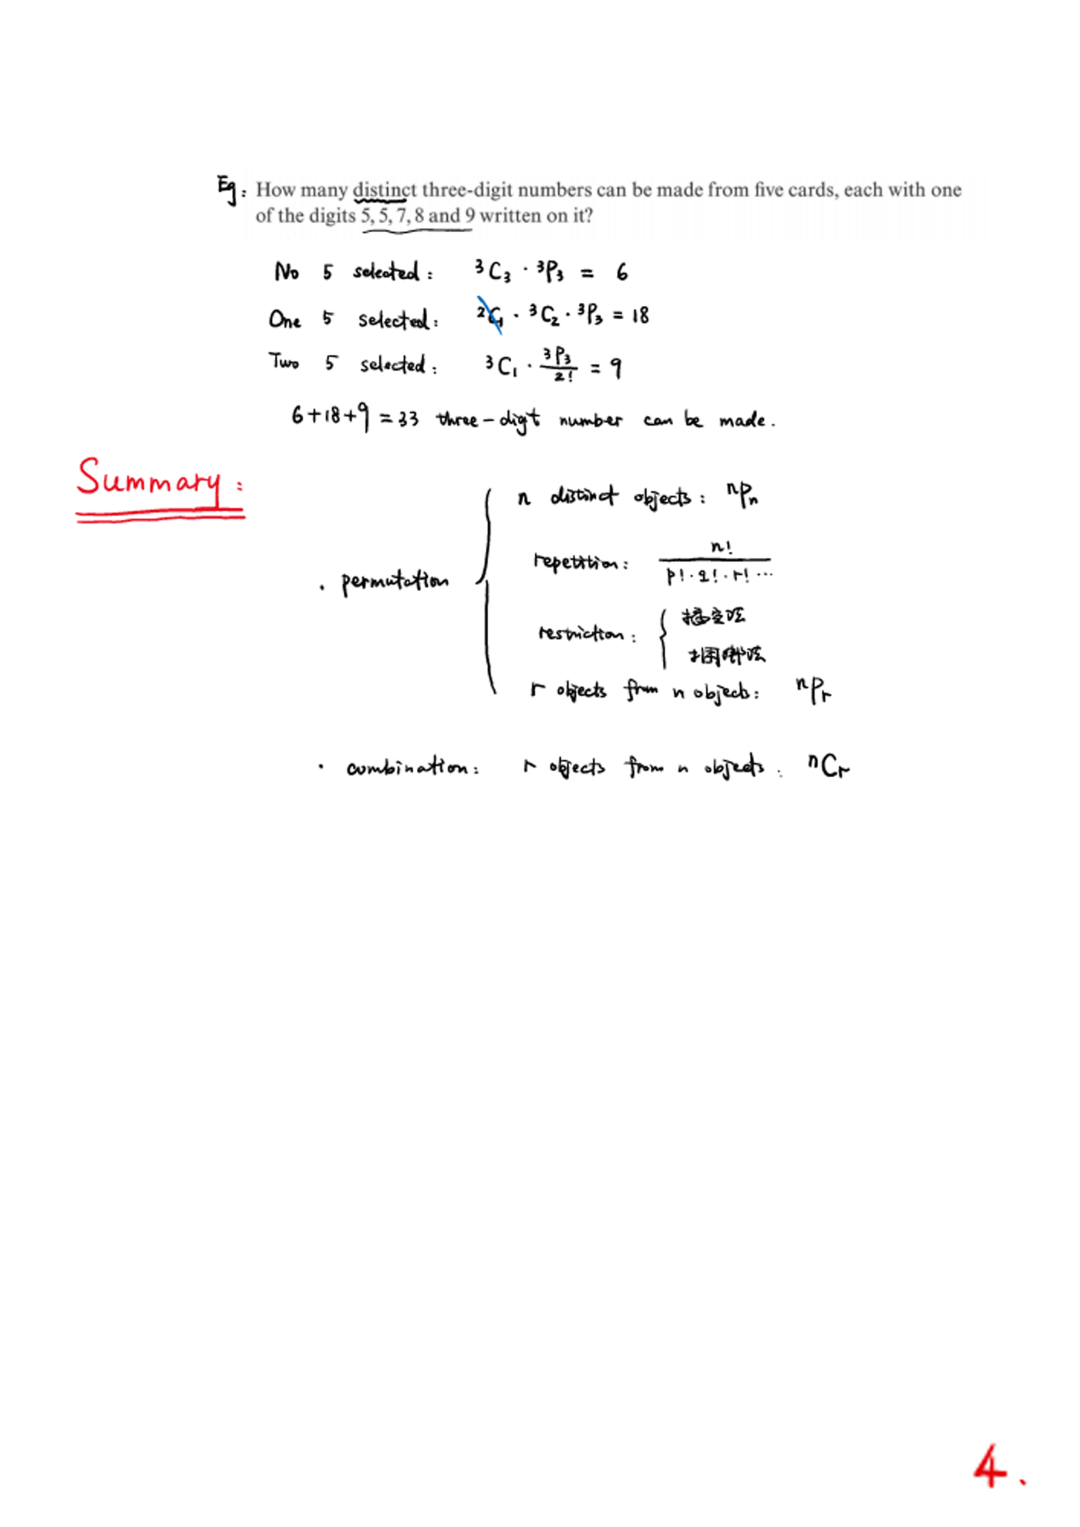 Eg: How many distinct three-digit numbers can be made from five cards, each with one
of the digits 5, 5, 7, 8 and 9 written on it?
No 5 selected: ³C₃ · ³P₃ = 6
One 5 selected: ²C₁ · ³C₂ · ³P₃ = 18
Two 5 selected: ³C₁ · ³P₃/2! = 9
6+18+9=33 three-digit number can be made.
Summary:
n distinct objects: ⁿPₙ
repetition: n!/(p!·q!·r!···)
· permutation
restriction: { 插空法
捆绑法
r objects from n objects: ⁿPᵣ
· combination: r objects from n objects: ⁿCᵣ
4.